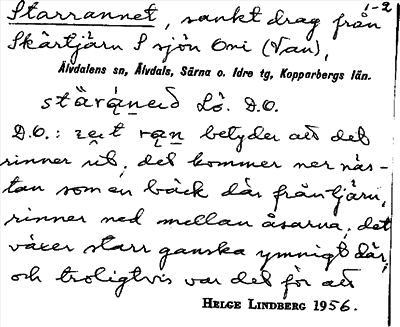 1-2
Starrannet, sankt drag från
Skärtjärn S sjön Omi (Van),
Älvdalens sn, Älvdals, Särna o. Idre tg, Kopparbergs län.
stäraneð Lö. D.O.
D.O.: ran betyder att det
rinner ut, det kommer ner näs-
tan som en bäck där från tjärn,
rinner ned mellan åsarna, det
växer starr ganska ymnigt där,
och troligtvis var det för att
HELGE LINDBERG 1956.